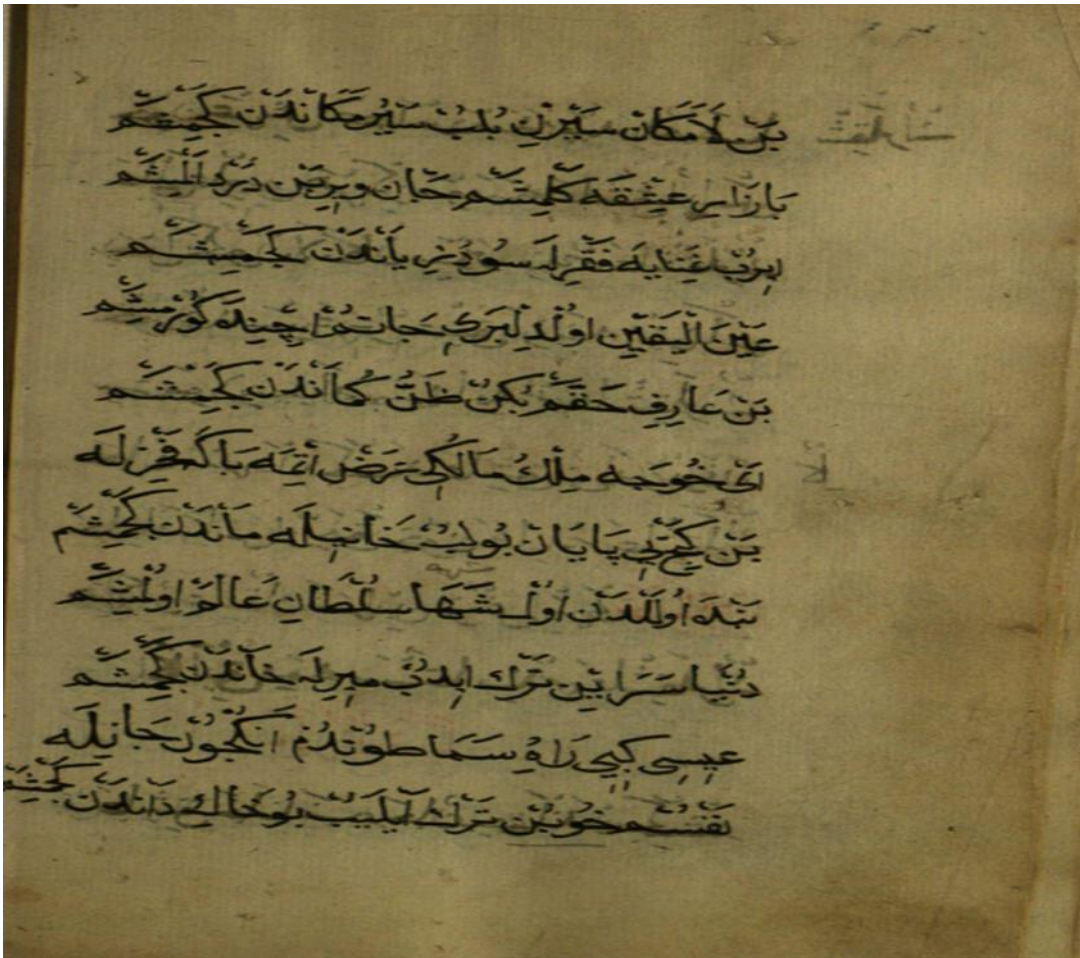 بن لَامَكَان سَيْرِن بُلُبْ سَيْرُ مَكَانْدَنْ كَجْمِشَم
بَازَارِ عِشْقَه كَلْمِشَم جَان وِيرِبَن دَرْد اَلْمِشَم
اِيرُبْ غِنَايَه فَقْرِلَه سُودُ زِيَانْدَنْ كَجْمِشَم
عَيْنَ الْيَقِين اُولْ دِلْبَرِي جَانُمْ اِچِنْدَه كُورْمِشَم
بَنْ عَارِفِ حَقَّمْ بُكُنْ ظَنُّ كُمَانْدَنْ كَجْمِشَم
اَيْ خُوجَه مِلْكُ مَالِكِي عَرْضْ اَتْمَه بَاكَه فَخْرِلَه
بَنْ كَنْجِ بِي پَايَانْ بُولُبْ خَانِيلَه مَانْدَنْ كَجْمِشَم
بَنْدَه اُولَلْدَنْ اُولْ شَهَا سُلْطَانِ عَالَمْ اُولْمِشَم
دُنْيَا سَرَايِنْ تَرْك اِيدُبْ مِيرِلَه خَانْدَنْ كَجْمِشَم
عِيسِى كِبِي رَاهِ سَمَا طُوتْدُمْ اَنْكْچُونْ جَانِيلَه
نَفْسُمْ خُويِنْ تَرْك اَيْلَيُبْ بُو خَاكِدَانْدَنْ كَجْمِشَم